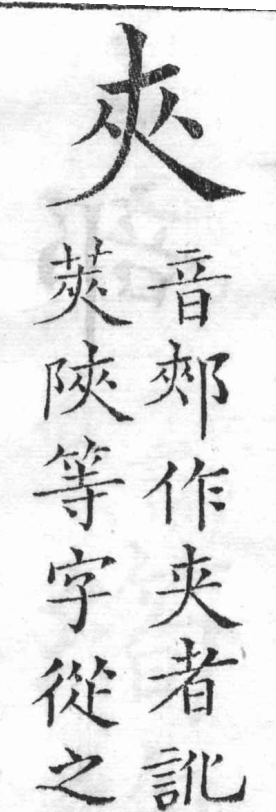 夾
音郟作夹者訛
莢陝等字從之